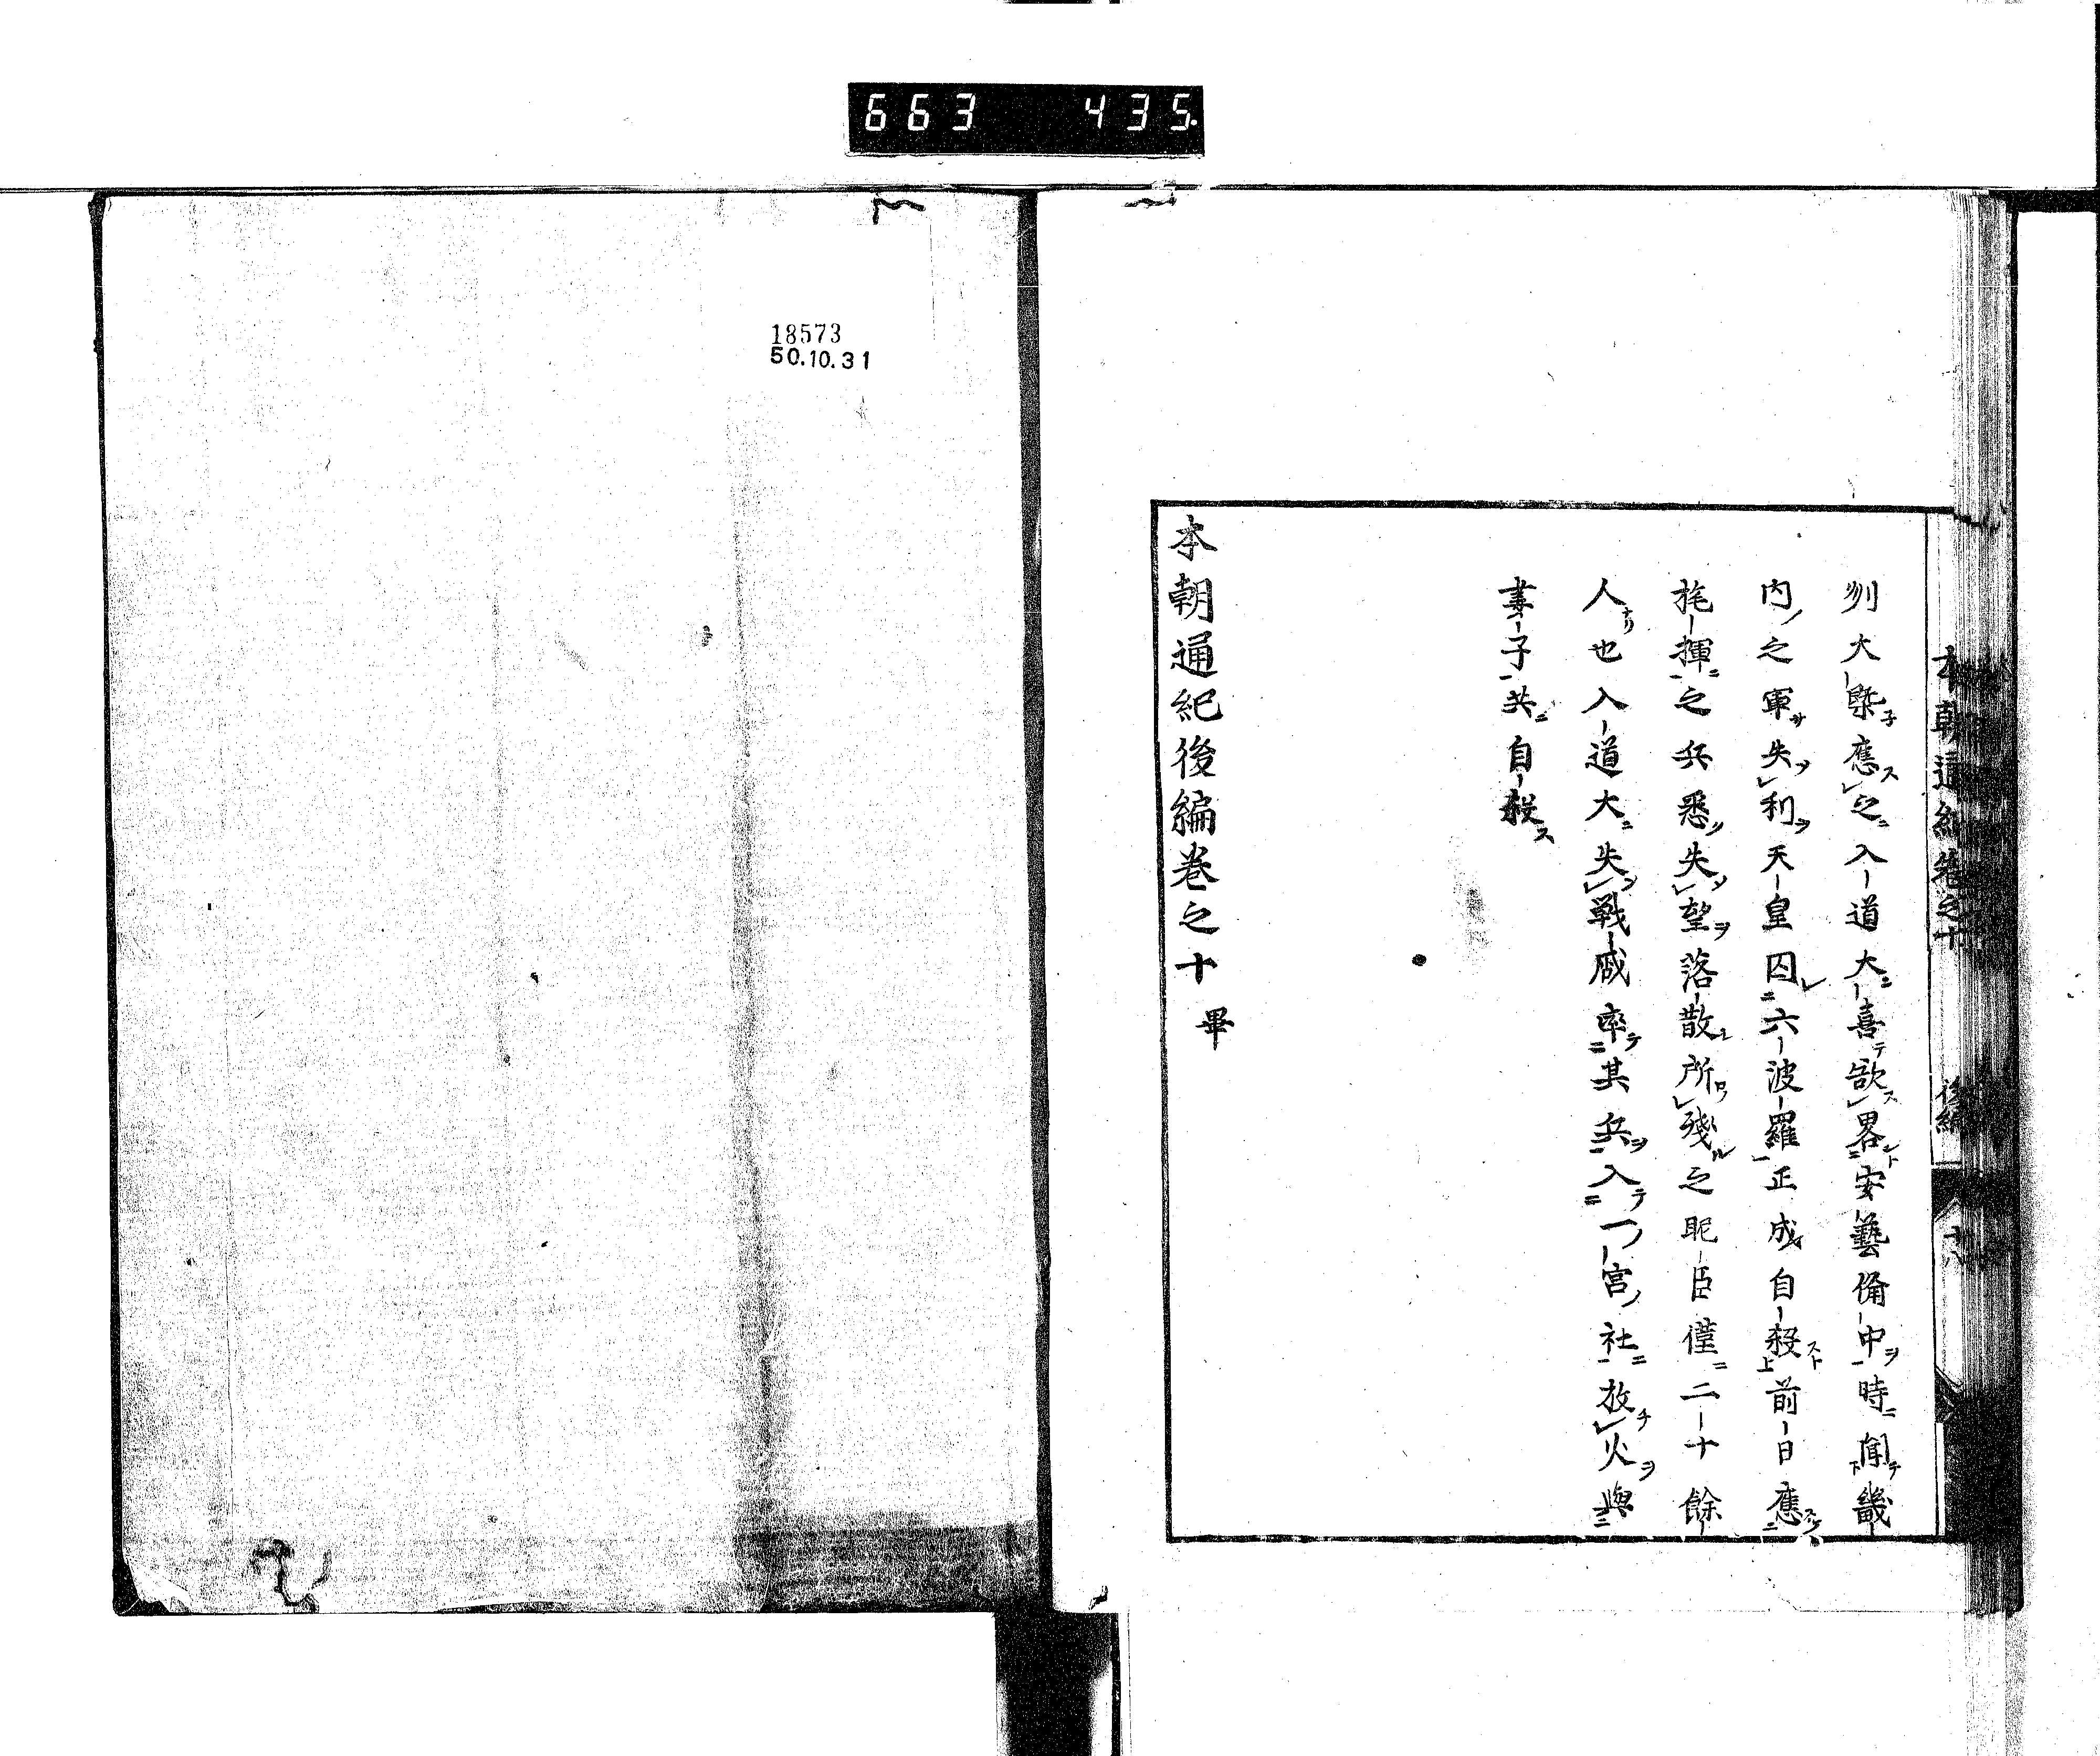 663 435
本朝通紀卷之十 後編 十八
刕大槩應之入道大喜欲畧安藝備中時聞畿
内之軍失利天皇囚六波羅正成自殺前日應
旄揮之兵悉失望落散所殘之昵臣僅二十餘
人也入道大失戰威率其兵入一宮社放火與
妻子共自殺
本朝通紀後編卷之十 畢
18573
50.10.31